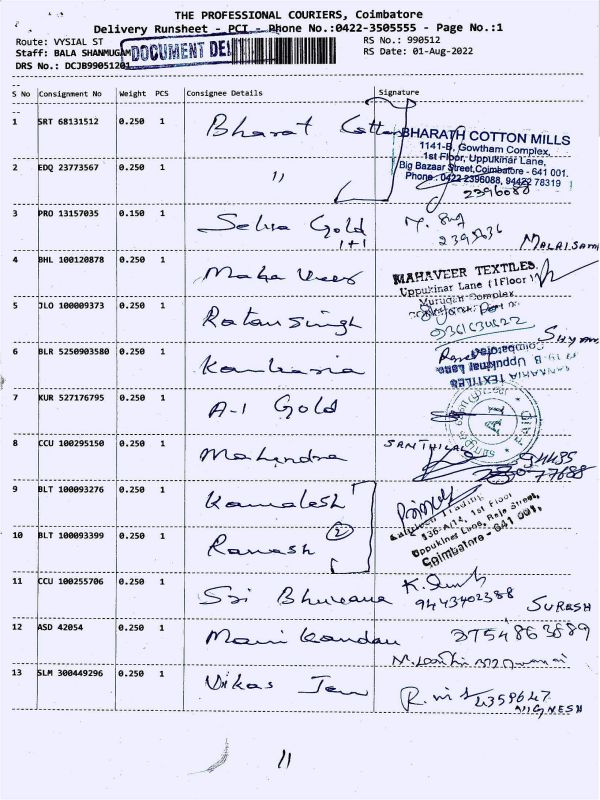 THE PROFESSIONAL COURIERS, Coimbatore
Delivery Runsheet - PCT - Phone No.:0422-3505555 - Page No.:1
Route: VYSIAL ST
RS No.: 990512
Staff: BALA SHANMUGAM
DOCUMENT DEL
RS Date: 01-Aug-2022
DRS No.: DCJB99051201
S No Consignment No Weight PCS Consignee Details Signature
1 SRT 68131512 0.250 1 Bharat Cotton
BHARATH COTTON MILLS
1141-B, Gowtham Complex,
1st Floor, Uppukinar Lane,
Big Bazaar Street, Coimbatore - 641 001.
Phone : 0422 2396088, 94422 78319
2 EDQ 23773567 0.250 1 11
2396088
3 PRO 13157035 0.150 1 Selva Gold
1+1
MALAISAMI
4 BHL 100120878 0.250 1 Maha Veer
MAHAVEER TEXTILES
Uppukinar Lane (1Floor)
Murugan Complex
5 JLO 100009373 0.250 1 Ratan Singh
6 BLR 5250903580 0.250 1 Kankaria
SHYAM
KANKARIA TEXTILES
Uppukinar Lane
Coimbatore
7 KUR 527176795 0.250 1 A-1 Gold
A1
8 CCU 100295150 0.250 1 Mahendra
SANTHILAL
94435
77688
9 BLT 100093276 0.250 1 Kamalesh
Trading
136-A/14, 1st Floor
Uppukinar Lane, Raja Street,
Coimbatore - 641 001.
10 BLT 100093399 0.250 1 Ramesh
2
11 CCU 100255706 0.250 1 Sri Bhuvana
9443402388
SURESH
12 ASD 42054 0.250 1 Mani kandan
13 SLM 300449296 0.250 1 Vikas Jain
2359647
VIGNESH
11